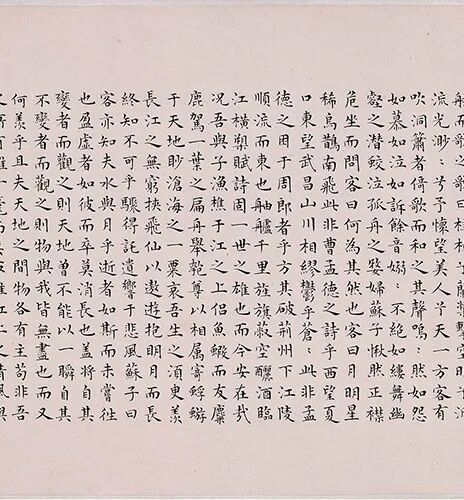 舷而歌之歌曰桂棹兮蘭槳擊空明兮泝
流光渺〻兮予懷望美人兮天一方客有
吹洞簫者倚歌而和之其聲嗚〻然如怨
如慕如泣如訴餘音嫋〻不絕如縷舞幽
壑之潛蛟泣孤舟之嫠婦蘇子愀然正襟
危坐而問客曰何為其然也客曰月明星
稀烏鵲南飛此非曹孟德之詩乎西望夏
口東望武昌山川相繆鬱乎蒼〻此非孟
德之困于周郎者乎方其破荊州下江陵
順流而東也舳艫千里旌旗蔽空釃酒臨
江橫槊賦詩固一世之雄也而今安在哉
況吾與子漁樵于江之上侶魚鰕而友麋
鹿駕一葉之扁舟舉匏尊以相屬寄蜉蝣
于天地眇滄海之一粟哀吾生之須臾羨
長江之無窮挾飛仙以遨遊抱明月而長
終知不可乎驟得託遺響于悲風蘇子曰
客亦知夫水與月乎逝者如斯而未嘗往
也盈虛者如彼而卒莫消長也蓋將自其
變者而觀之則天地曾不能以一瞬自其
不變者而觀之則物與我皆無盡也而又
何羨乎且夫天地之間物各有主苟非吾
之所有雖一毫而莫取惟江上之清風與